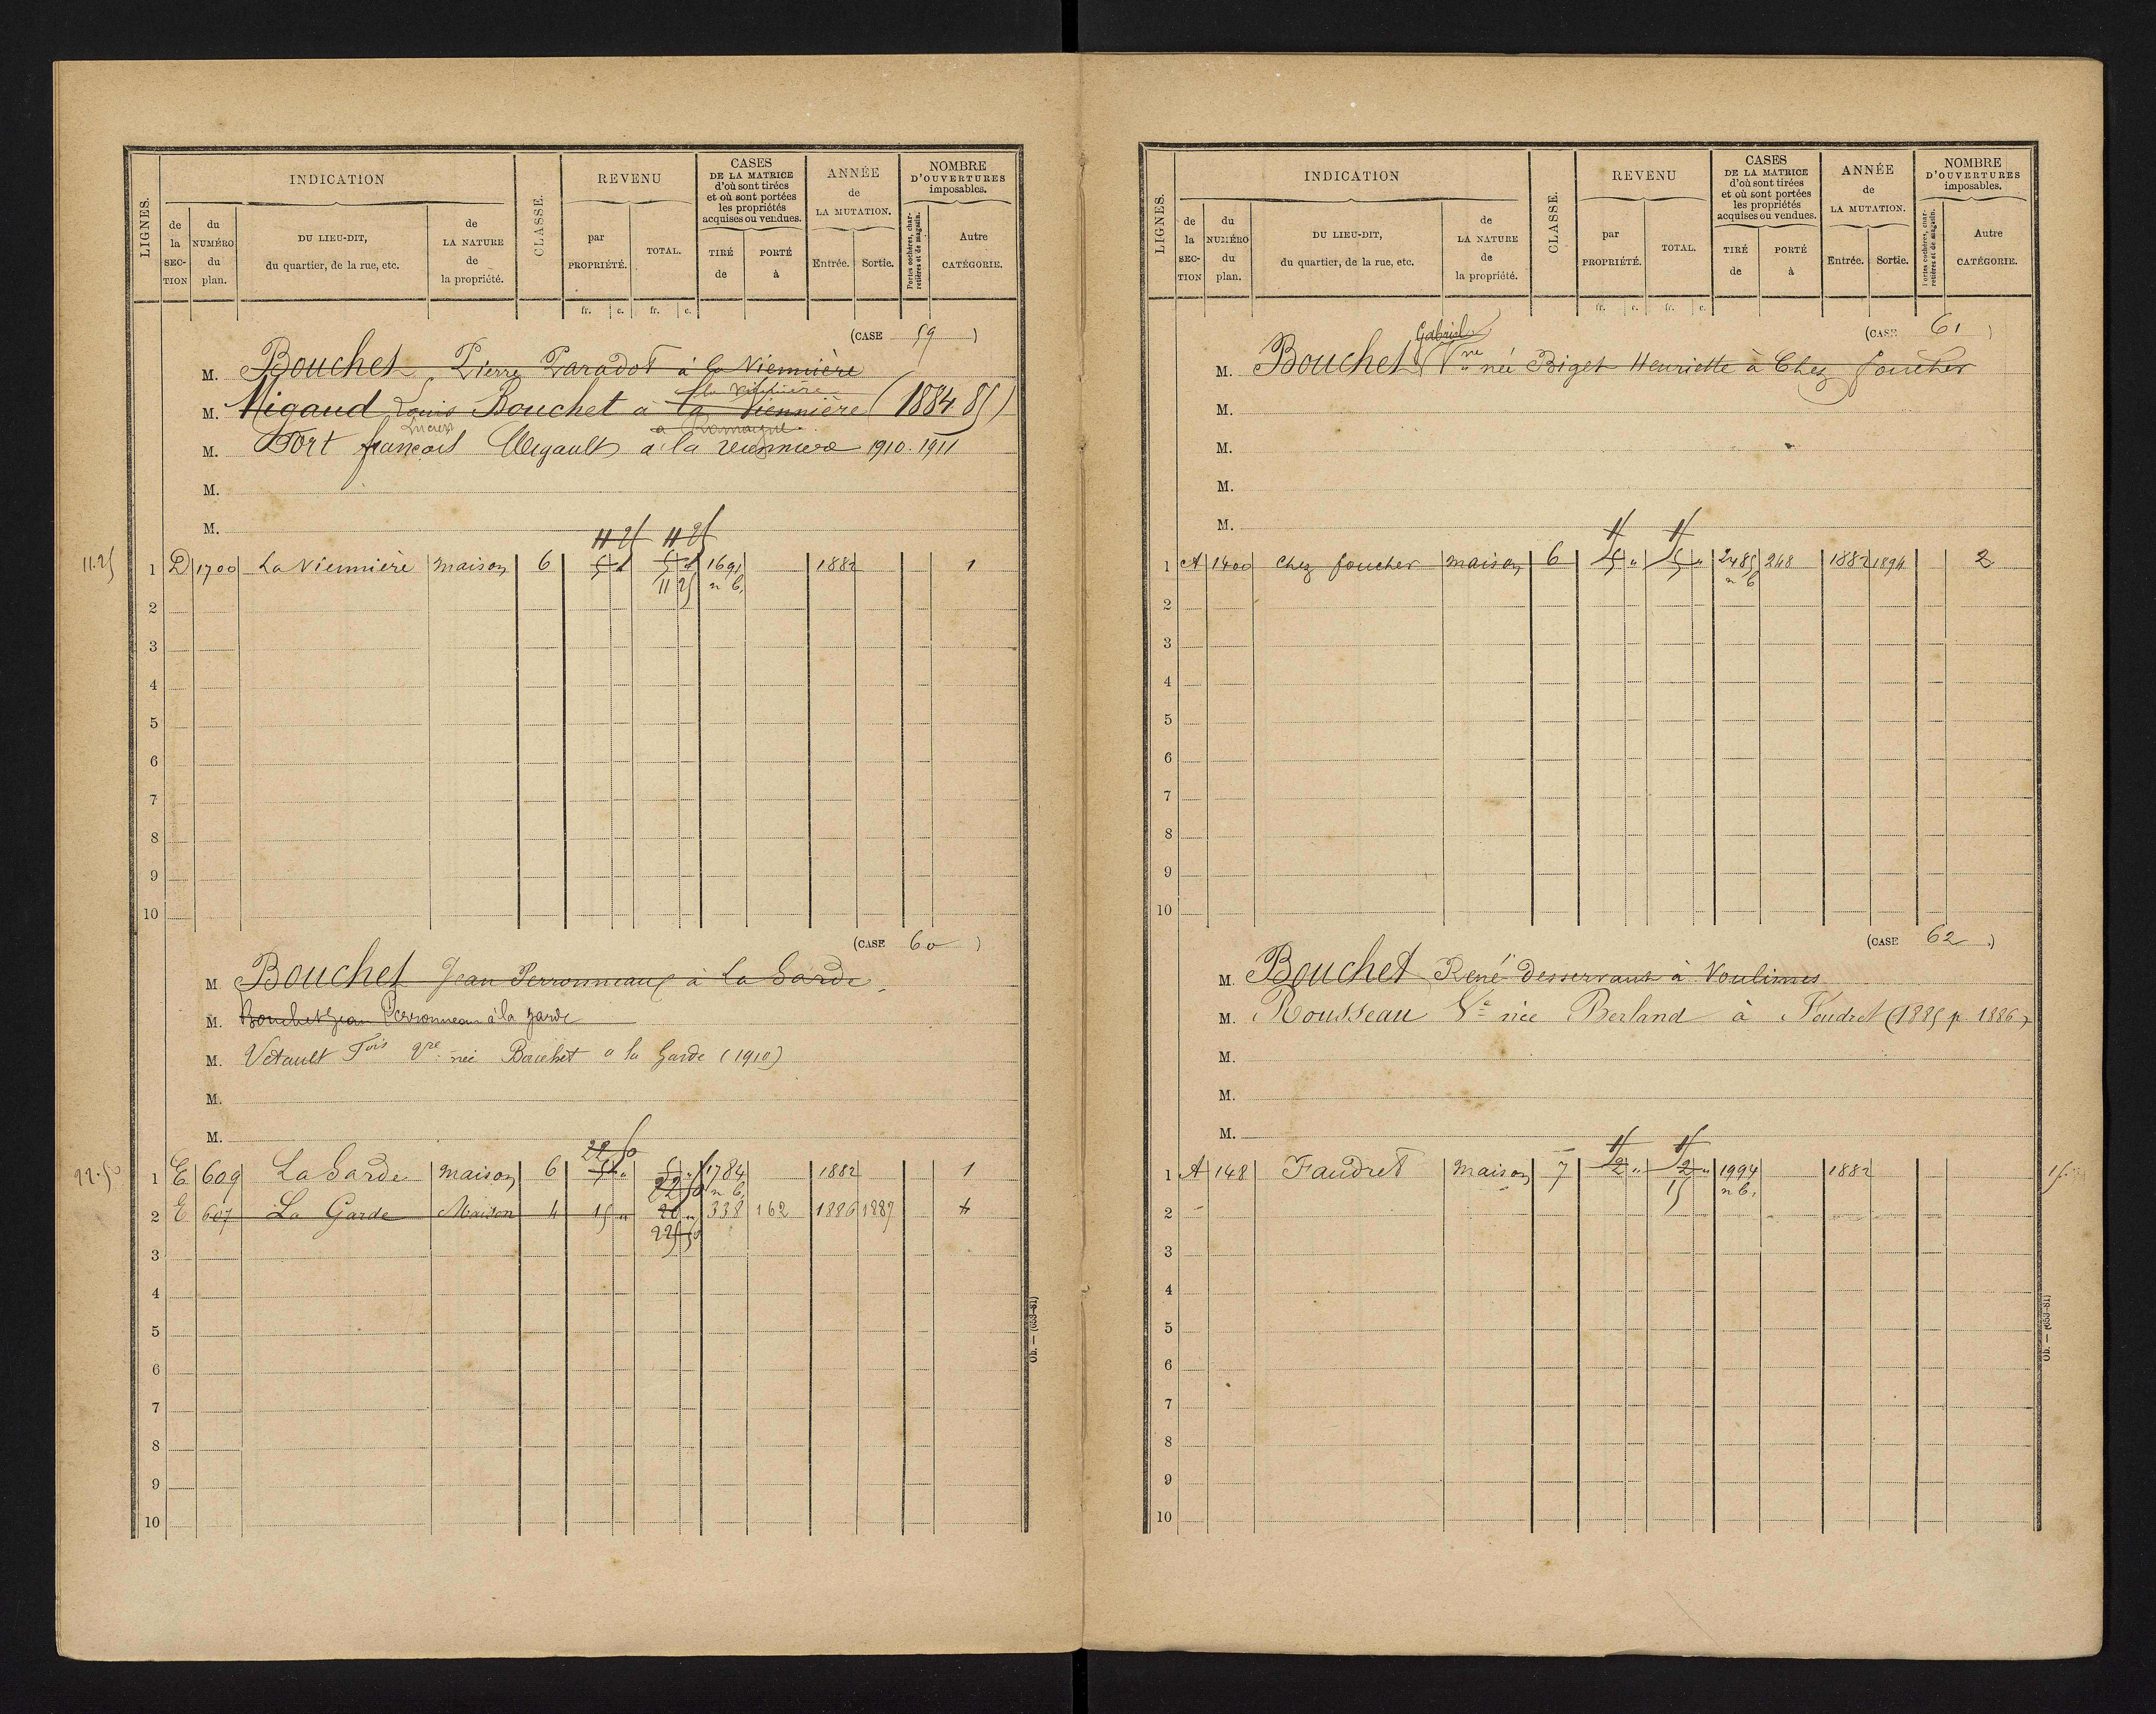 LIGNES.
INDICATION
de la SECTION
du NUMÉRO du plan.
DU LIEU-DIT, du quartier, de la rue, etc.
de LA NATURE de la propriété.
CLASSE.
REVENU
par PROPRIÉTÉ.
TOTAL.
CASES DE LA MATRICE d'où sont tirées et où sont portées les propriétés acquises ou vendues.
TIRÉ de
PORTÉ à
ANNÉE de LA MUTATION.
Entrée.
Sortie.
NOMBRE D'OUVERTURES imposables.
Portes cochères, charretières et de magasin.
Autre CATÉGORIE.
fr. c. fr. c.
(CASE 59)
M. Bouchet Pierre Paradot à la Viennière
la Viennière
M. Migaud Louis Bouchet à la Viennière (1884.85)
à Romagne
M. Fort françois Migault à la Viennière 1910.1911
M.
M.
11 25 11 25
11.25 1 D 1700 La Viennière maison 6 5 5 1691 1882 1
11 25 n b.
2
3
4
5
6
7
8
9
10
(CASE 60)
M. Bouchet Jean Perronneau à La Garde
M. Bouchet Jean Perronneau à la garde
M. Vétault Fois née Bouchet à la Garde (1910)
M.
M.
22 50
22.50 1 E 609 La Garde maison 6 5 " 5 " 1784 1882 1
22 50 n b.
2 E 607 La Garde Maison 4 15 " 20 " 338 162 1886 1887 4
22 50
3
4
5
6
7
8
9
10
Ob. — (653-81)
LIGNES.
INDICATION
de la SECTION
du NUMÉRO du plan.
DU LIEU-DIT, du quartier, de la rue, etc.
de LA NATURE de la propriété.
CLASSE.
REVENU
par PROPRIÉTÉ.
TOTAL.
CASES DE LA MATRICE d'où sont tirées et où sont portées les propriétés acquises ou vendues.
TIRÉ de
PORTÉ à
ANNÉE de LA MUTATION.
Entrée.
Sortie.
NOMBRE D'OUVERTURES imposables.
Portes cochères, charretières et de magasin.
Autre CATÉGORIE.
fr. c. fr. c.
(CASE 61)
Gabriel
M. Bouchet Vve née Biget Henriette à Chez foucher
M.
M.
M.
M.
1 A 1400 chez foucher maison 6 5 " 5 " 2485 248 1882 1894 2
n b
2
3
4
5
6
7
8
9
10
(CASE 62)
M. Bouchet René desservant à Voulimes
M. Rousseau Ve née Berland à Foudret (1885 p 1886)
M.
M.
M.
15 15
1 A 148 Faudret maison 7 2 " 2 " 1994 1882 15
15 n b.
2
3
4
5
6
7
8
9
10
Ob. — (653-81)